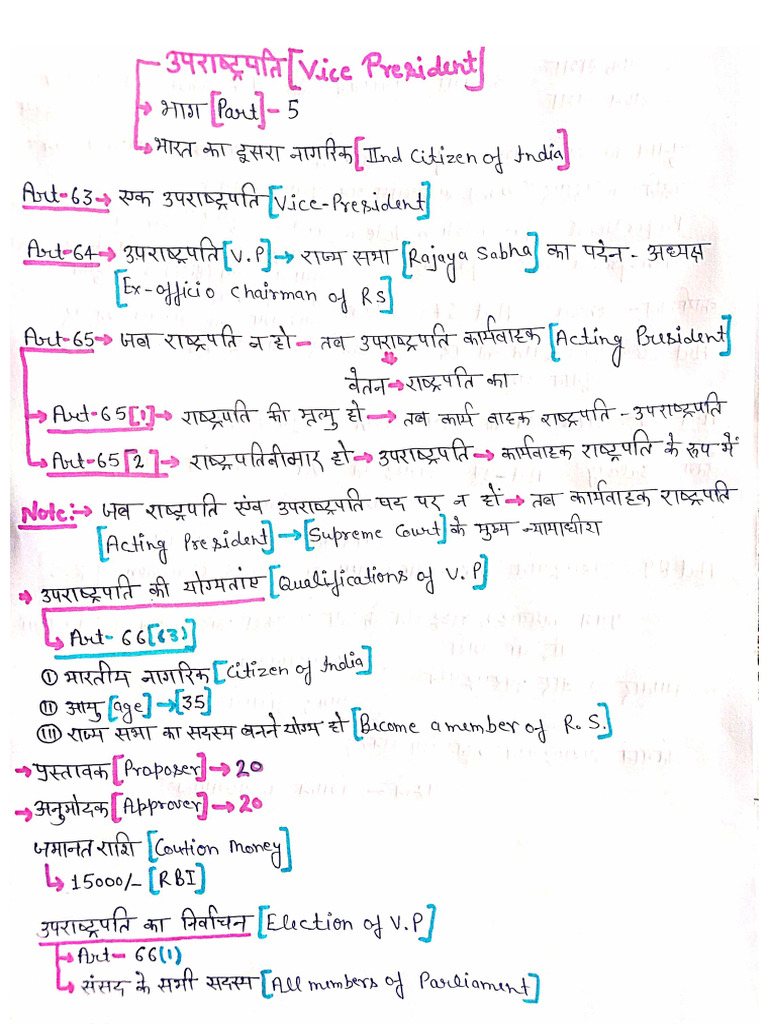 उपराष्ट्रपति [Vice President]
→ भाग [Part] - 5
→ भारत का दूसरा नागरिक [IInd Citizen of India]
Art-63 → एक उपराष्ट्रपति [Vice-President]
Art-64 → उपराष्ट्रपति [V.P] → राज्य सभा [Rajaya Sabha] का पदेन - अध्यक्ष
[Ex-officio Chairman of RS]
Art-65 → जब राष्ट्रपति न हो - तब उपराष्ट्रपति कार्यवाहक [Acting President]
वेतन → राष्ट्रपति का
→ Art-65[1] → राष्ट्रपति की मृत्यु हो → तब कार्य वाहक राष्ट्रपति - उपराष्ट्रपति
→ Art-65[2] → राष्ट्रपति बीमार हो → उपराष्ट्रपति → कार्यवाहक राष्ट्रपति के रूप में
Note:→ जब राष्ट्रपति एंव उपराष्ट्रपति पद पर न हों → तब कार्यवाहक राष्ट्रपति
[Acting President] → [Supreme Court] के मुख्य न्यायाधीश
→ उपराष्ट्रपति की योग्यतांए [Qualifications of V.P]
→ Art- 66[63]
(I) भारतीय नागरिक [Citizen of India]
(II) आयु [age] → [35]
(III) राज्य सभा का सदस्य बनने योग्य हो [Become a member of R.S.]
→ प्रस्तावक [Proposer] → 20
→ अनुमोदक [Approver] → 20
जमानत राशि [Coution Money]
↳ 15000/- [RBI]
उपराष्ट्रपति का निर्वाचन [Election of V.P]
→ Art- 66(1)
→ संसद के सभी सदस्य [All members of Parliament]